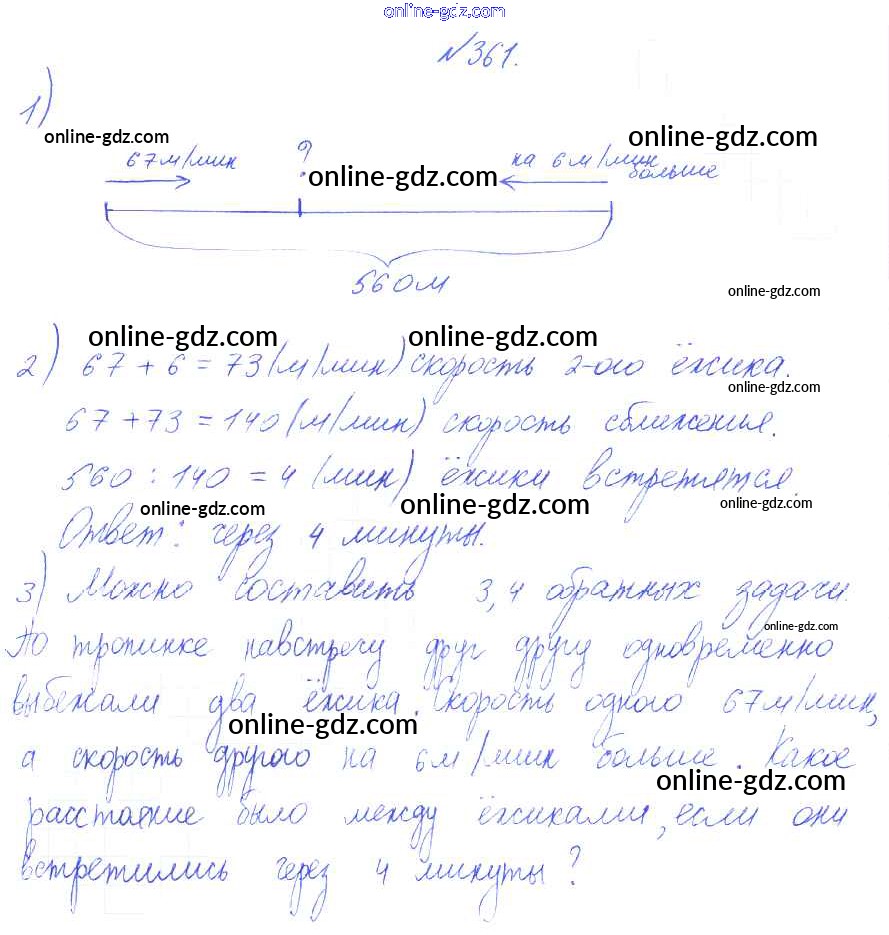 online-gdz.com
№361.
1)
online-gdz.com
online-gdz.com
67м/мин
?
на 6м/мин
больше
online-gdz.com
560м
online-gdz.com
online-gdz.com
online-gdz.com
2) 67 + 6 = 73(м/мин) скорость 2-ого ёжика.
online-gdz.com
67 + 73 = 140(м/мин) скорость сближенья.
560 : 140 = 4 (мин) ёжики встретятся.
online-gdz.com
online-gdz.com
online-gdz.com
Ответ: через 4 минуты.
3) Можно составить 3,4 обратных задачи.
online-gdz.com
По тропинке навстречу друг другу одновременно
выбежали два ёжика. Скорость одного 67м/мин,
online-gdz.com
а скорость другого на 6м/мин больше. Какое
online-gdz.com
расстояние было между ёжиками, если они
встретились через 4 минуты?